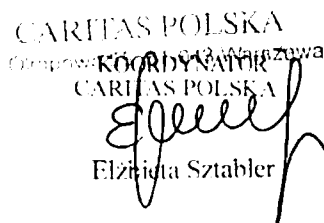 CARITAS POLSKA
Warszawa
KOORDYNATOR
CARITAS POLSKA
Elżbieta Sztabler